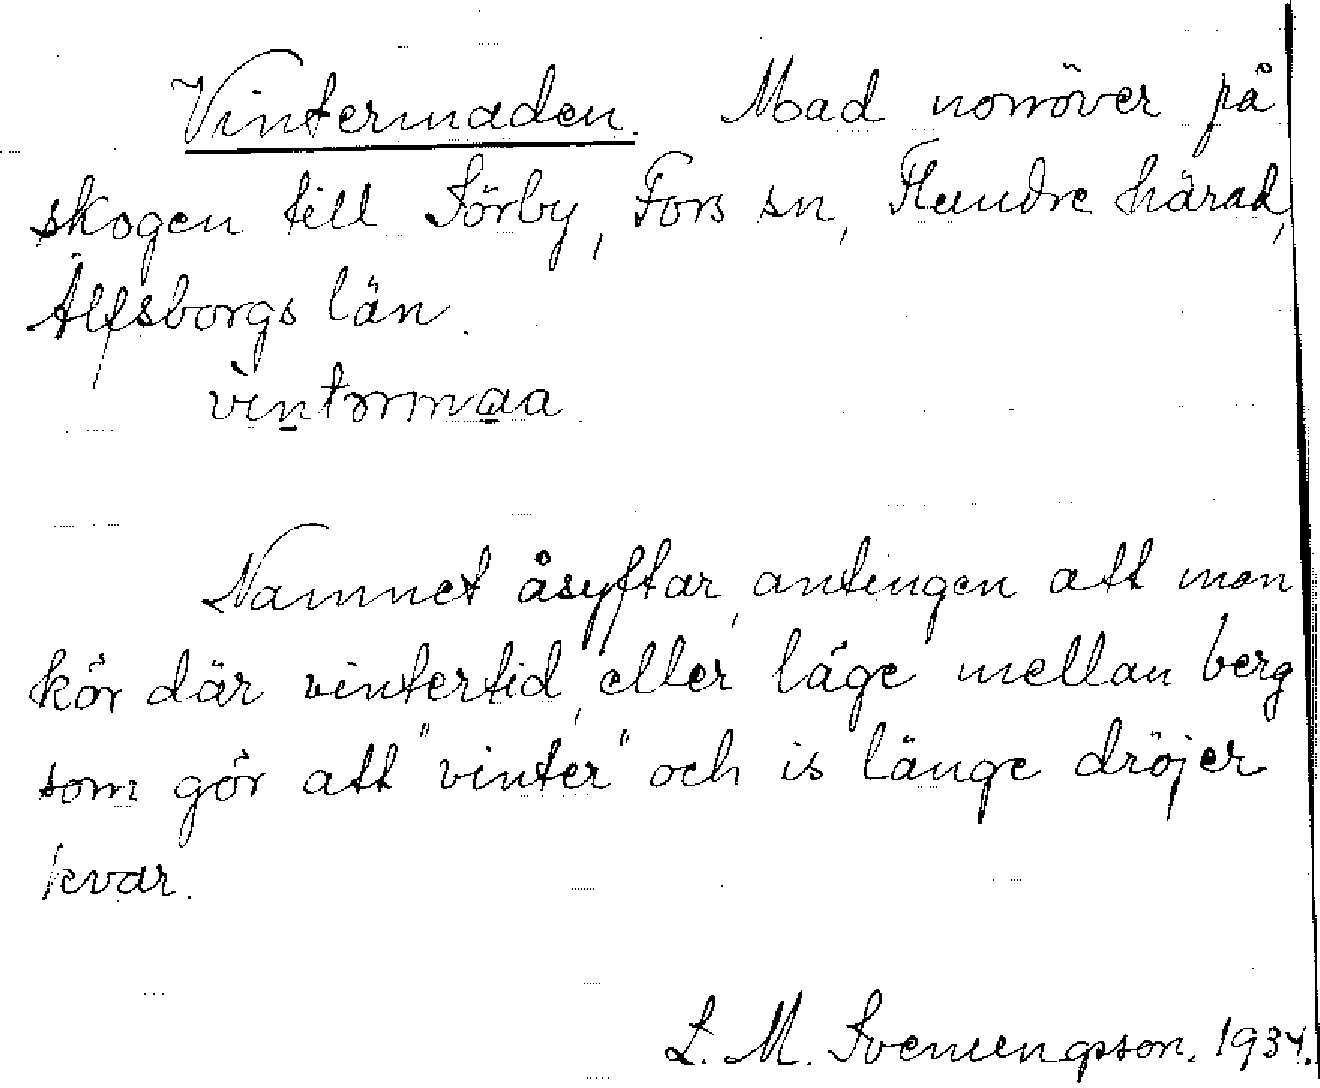 Vintermaden. Mad norröver på
skogen till Sörby, Fors sn, Flundre härad,
Älfsborgs län.
vintərmaa
Namnet åsyftar, antingen att man
kör där vintertid, eller läge mellan berg
som gör att "vinter" och is länge dröjer
kvar.
L. M. Svenungsson. 1934.